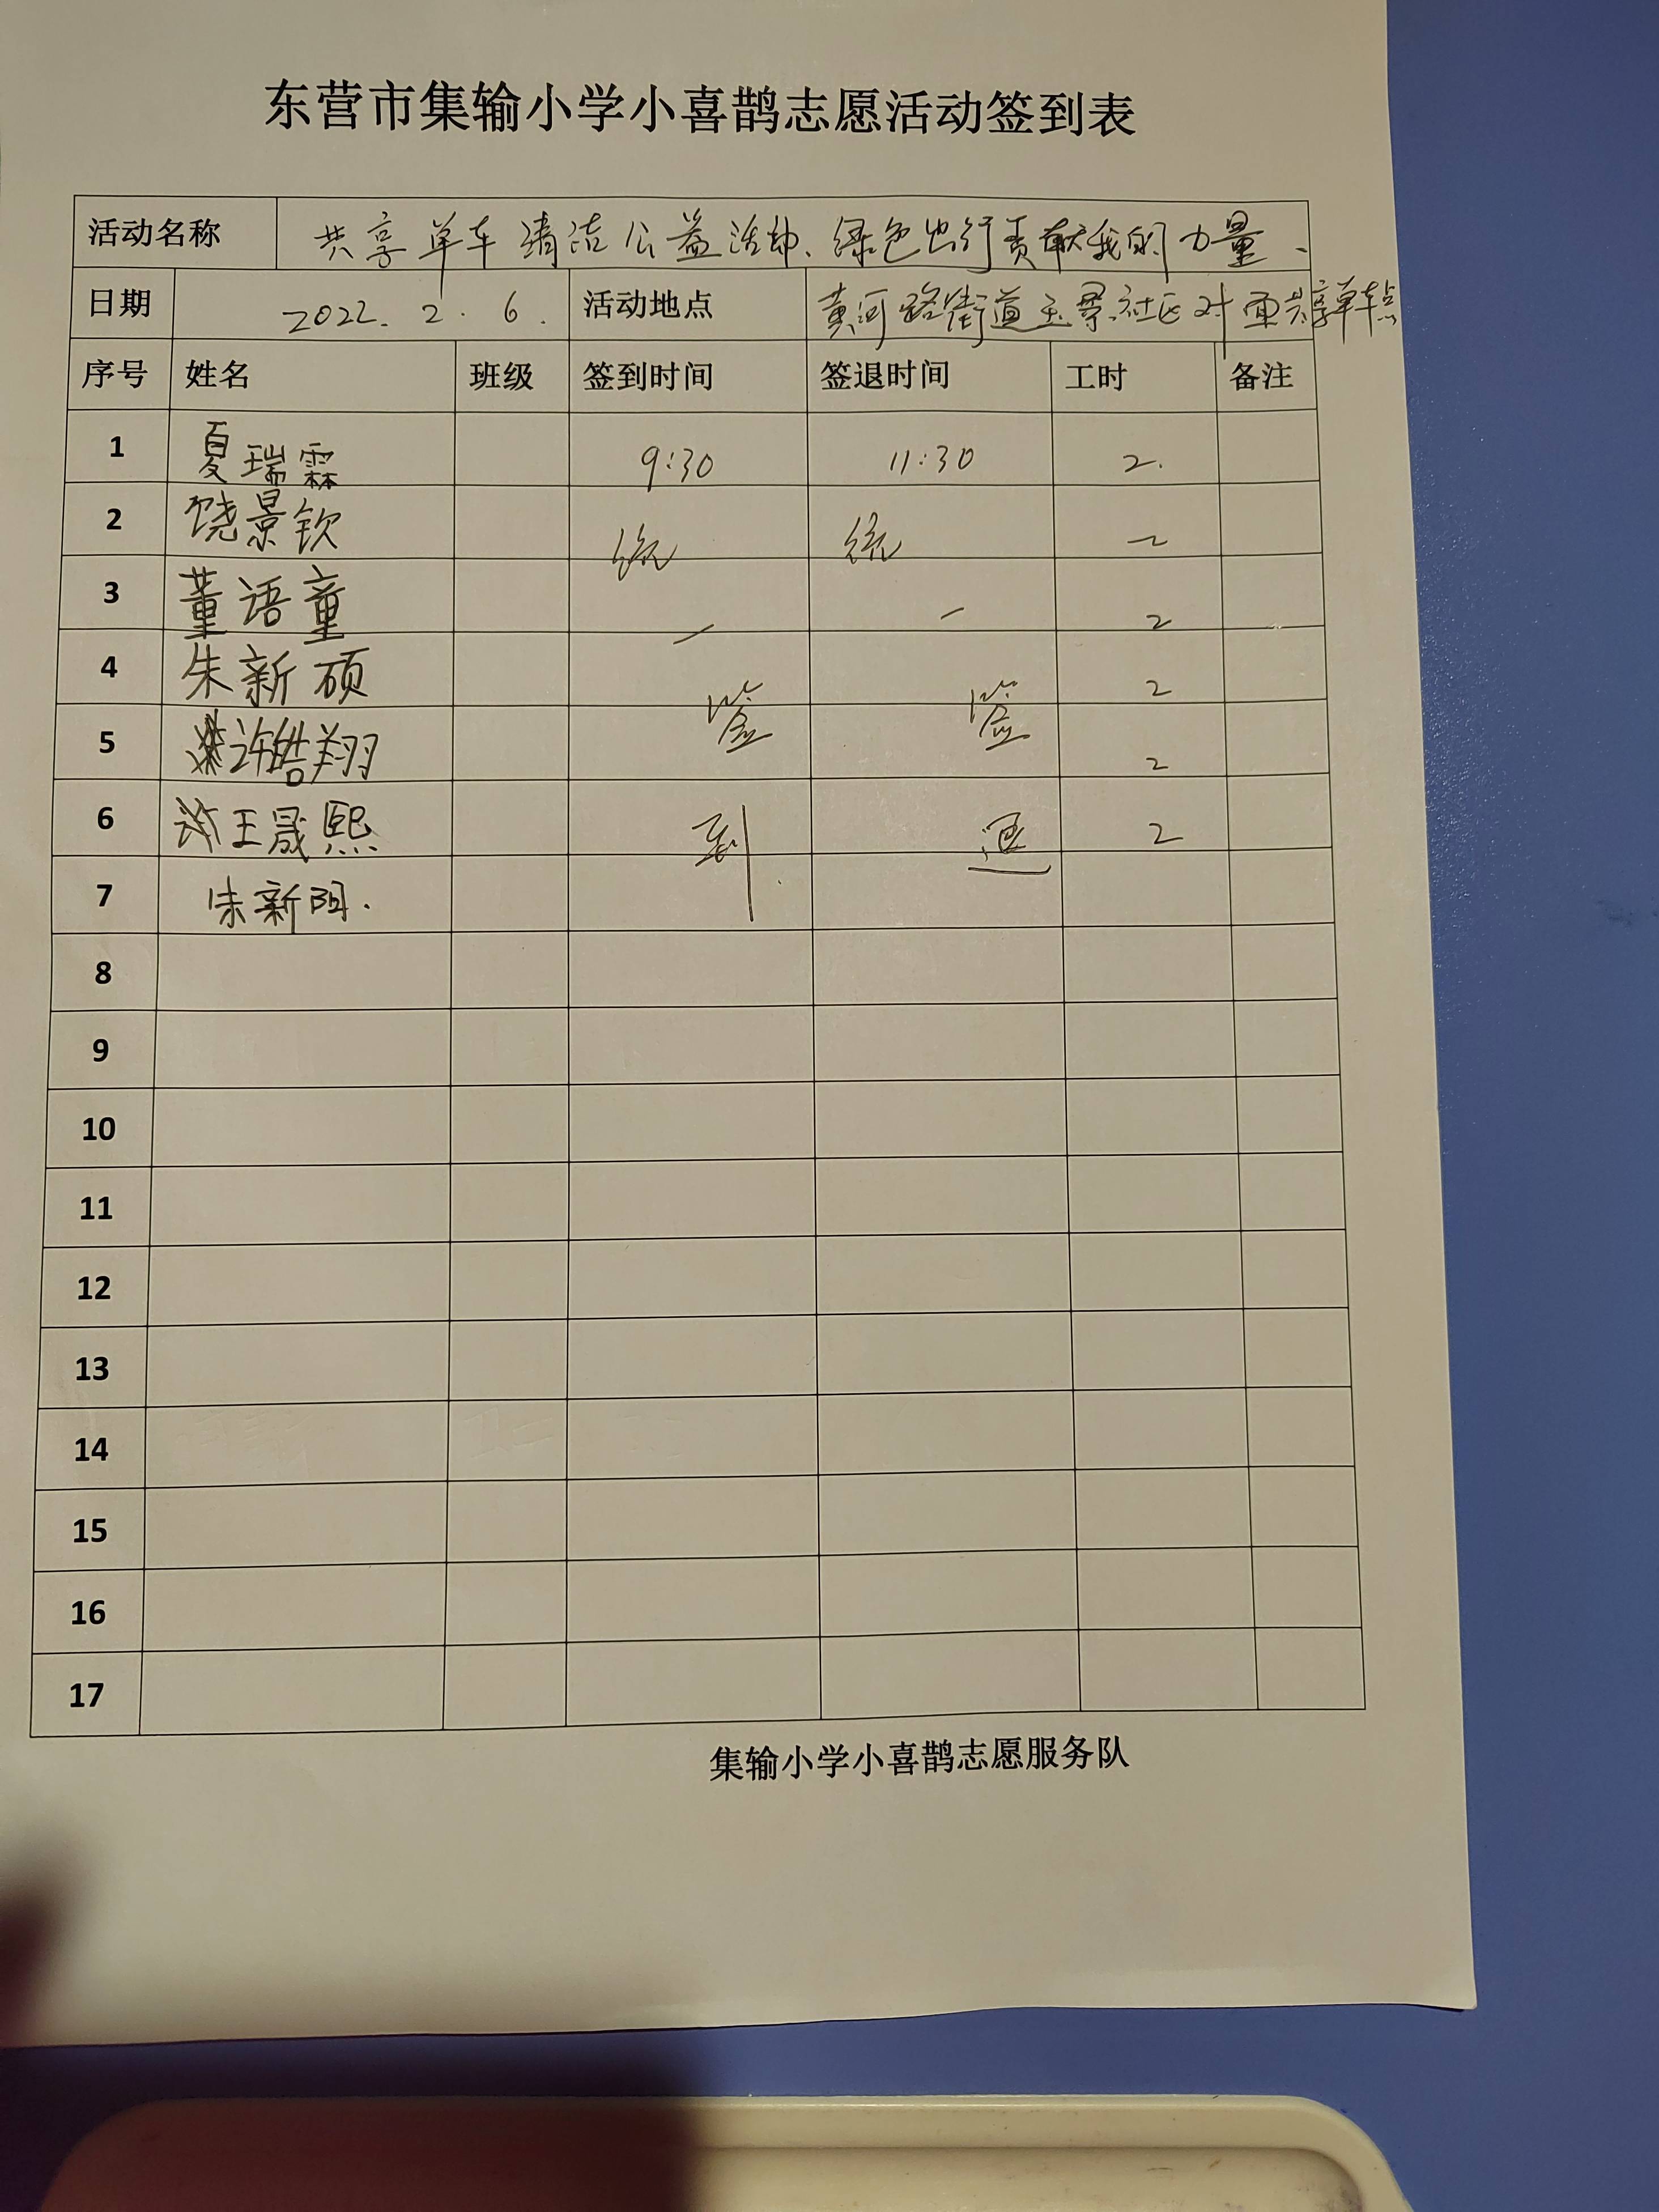 东营市集输小学小喜鹊志愿活动签到表
活动名称 共享单车清洁公益活动、绿色出行贡献我的力量、
日期 2022.2.6. 活动地点 黄河路街道玉景社区对面共享单车点
序号 姓名 班级 签到时间 签退时间 工时 备注
1 夏瑞霖 9:30 11:30 2.
2 饶景钦 统 统 2
3 董语童 一 一 2
4 朱新硕 2
5 许皓翔 签 签 2
6 王晟熙 到 退 2
7 朱新阳.
8
9
10
11
12
13
14
15
16
17
集输小学小喜鹊志愿服务队